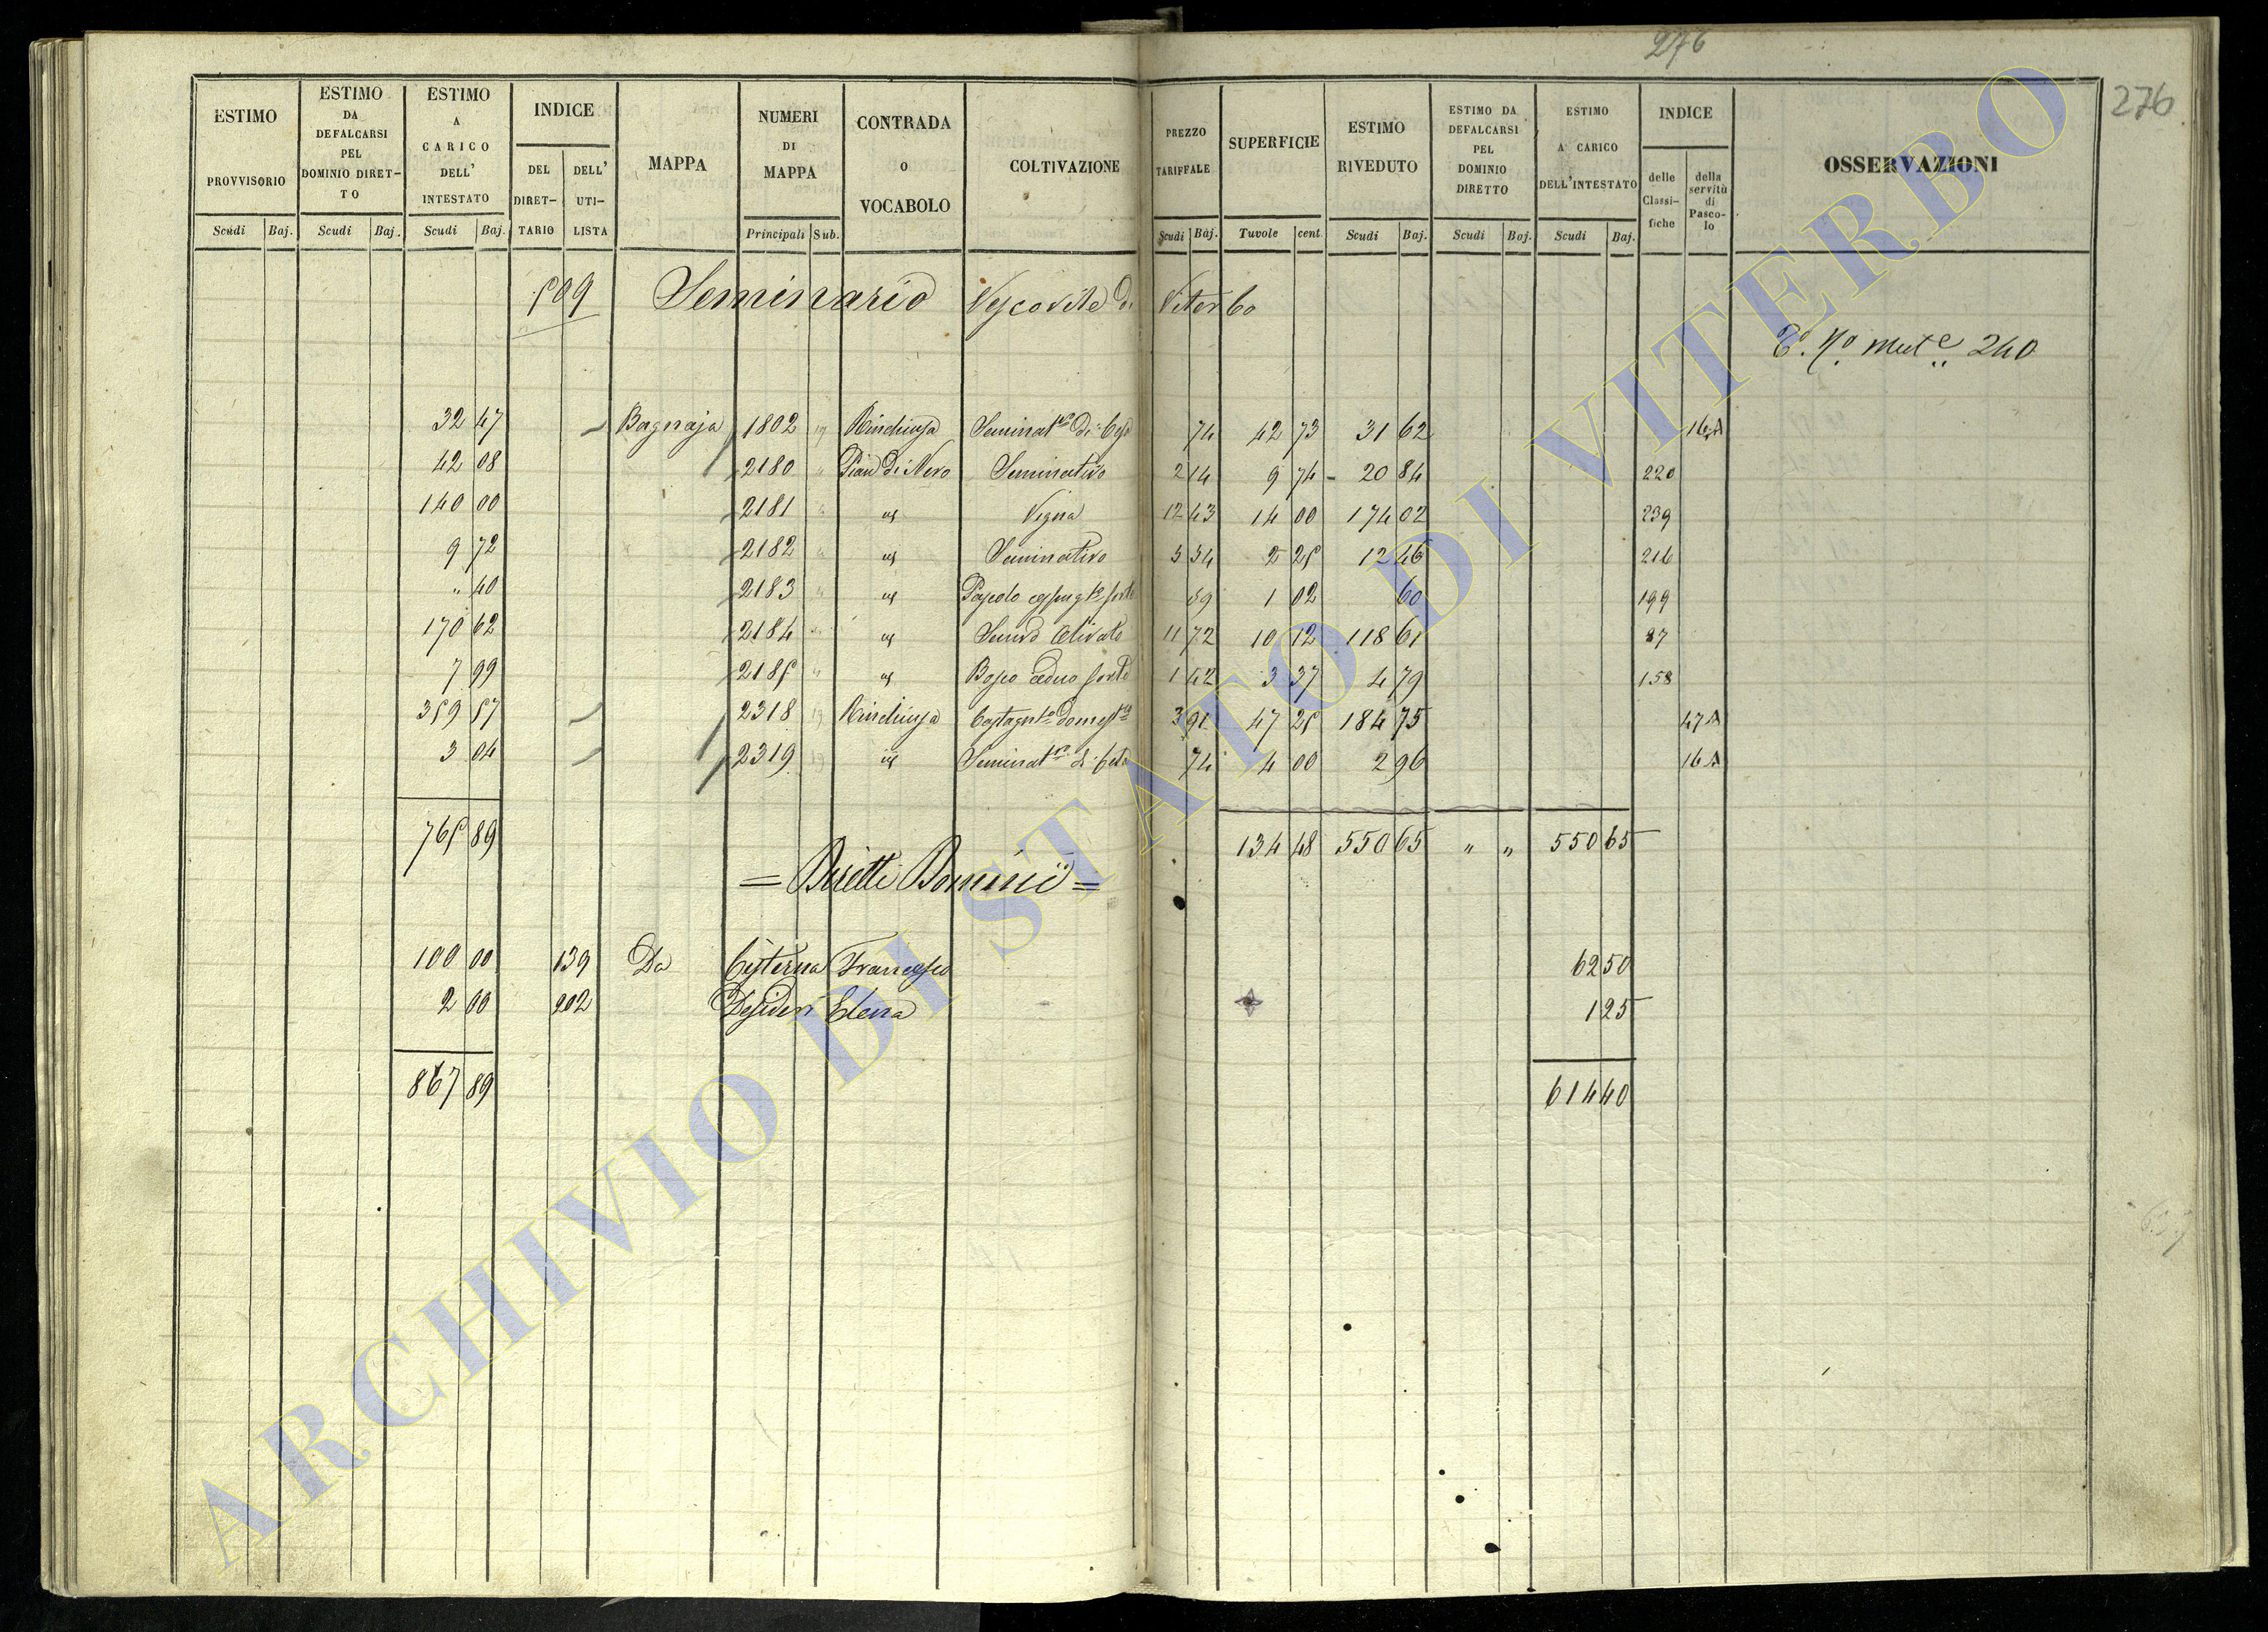 276
276
ESTIMO PROVVISORIO
ESTIMO DA DEFALCARSI PEL DOMINIO DIRET-TO
ESTIMO A CARICO DELL' INTESTATO
INDICE
DEL DIRET-TARIO
DELL' UTI-LISTA
MAPPA
NUMERI DI MAPPA
CONTRADA o VOCABOLO
COLTIVAZIONE
PREZZO TARIFFALE
SUPERFICIE
ESTIMO RIVEDUTO
ESTIMO DA DEFALCARSI PEL DOMINIO DIRETTO
ESTIMO A CARICO DELL'INTESTATO
INDICE
delle Classi-fiche
della servitù di Pasco-lo
OSSERVAZIONI
Scudi Baj. Scudi Baj. Scudi Baj. Principali Sub. Scudi Baj. Tavole cent. Scudi Baj. Scudi Baj. Scudi Baj.
509 Seminario Vescovile di Viterbo
240
32 47 Bagnaja 1802 Seminat 74 42 73 31 62 16A
42 08 2180 " Pian di Nero Seminativo 2 14 9 74 20 84 220
140 00 2181 " Vigna 12 43 14 00 174 02 239
9 72 2182 " Seminativo 5 54 2 25 12 46 216
" 40 2183 " Pascolo forte 59 1 02 60 199
170 62 2184 " Olivato 11 72 10 12 118 61 87
7 99 2185 " Bosco ceduo forte 1 42 3 37 4 79 158
359 57 2318 3 91 47 25 184 75 47A
3 04 2319 74 4 00 2 96 16A
765 89 134 48 550 65 " " 550 65
= Diretti Dominii =
100 00 139 Da Cisterna Francesco 62 50
2 00 202 Desideri Elena 1 25
867 89 614 40
ARCHIVIO DI STATO DI VITERBO